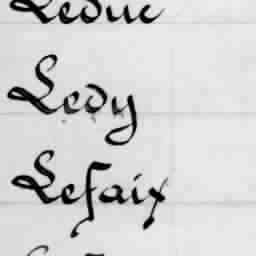 Leduc
Ledy
Lefaix